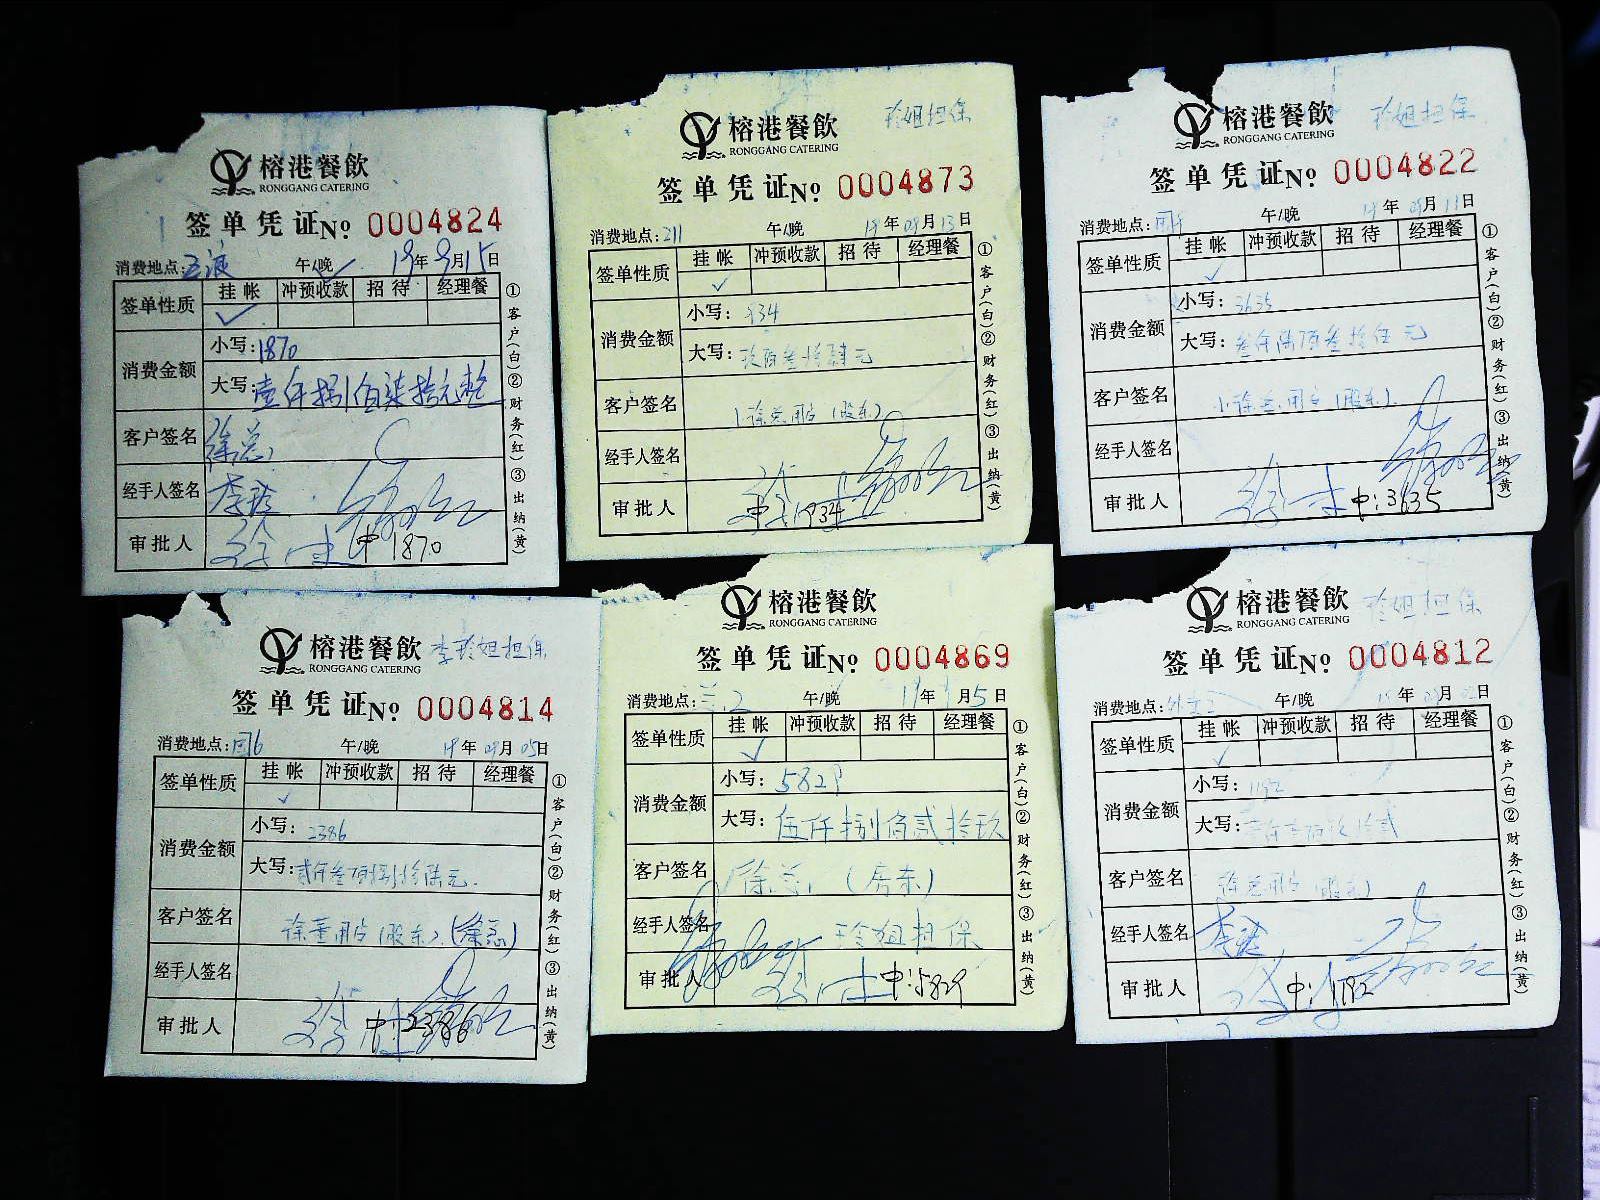 榕港餐飲
RONGGANG CATERING
签单凭证No 0004824
消费地点: 午/晚 19年9月15日
签单性质 挂帐 冲预收款 招待 经理餐
消费金额 小写:1870
大写:壹仟捌佰柒拾元整
客户签名 徐总
经手人签名 李玲
审批人 中 1870
①客户(白)②财务(红)③出纳(黄)
榕港餐飲 玲姐担保
RONGGANG CATERING
签单凭证No 0004873
消费地点:211 午/晚 19年09月13日
签单性质 挂帐 冲预收款 招待 经理餐
消费金额 小写:934
大写:玖佰叁拾肆元
客户签名 小徐总用占(股东)
经手人签名
审批人 中:934
①客户(白)②财务(红)③出纳(黄)
榕港餐飲 玲姐担保
RONGGANG CATERING
签单凭证No 0004822
消费地点: 午/晚 19年09月11日
签单性质 挂帐 冲预收款 招待 经理餐
消费金额 小写:3635
大写:叁仟陆佰叁拾伍元
客户签名 小徐总用占(股东)
经手人签名
审批人 中:3635
①客户(白)②财务(红)③出纳(黄)
榕港餐飲 李玲姐担保
RONGGANG CATERING
签单凭证No 0004814
消费地点: 午/晚 19年09月05日
签单性质 挂帐 冲预收款 招待 经理餐
消费金额 小写:2386
大写:贰仟叁佰捌拾陆元
客户签名 徐董用占(股东)(徐总)
经手人签名
审批人 中:2386
①客户(白)②财务(红)③出纳(黄)
榕港餐飲
RONGGANG CATERING
签单凭证No 0004869
消费地点: 午/晚 19年9月5日
签单性质 挂帐 冲预收款 招待 经理餐
消费金额 小写:5829
大写:伍仟捌佰贰拾玖
客户签名 徐总(房东)
经手人签名 玲姐担保
审批人 中:5829
①客户(白)②财务(红)③出纳(黄)
榕港餐飲 玲姐担保
RONGGANG CATERING
签单凭证No 0004812
消费地点: 午/晚 19年09月02日
签单性质 挂帐 冲预收款 招待 经理餐
消费金额 小写:1192
大写:壹仟壹佰玖拾贰
客户签名 徐总用占(股东)
经手人签名 李玲
审批人 中:1192
①客户(白)②财务(红)③出纳(黄)